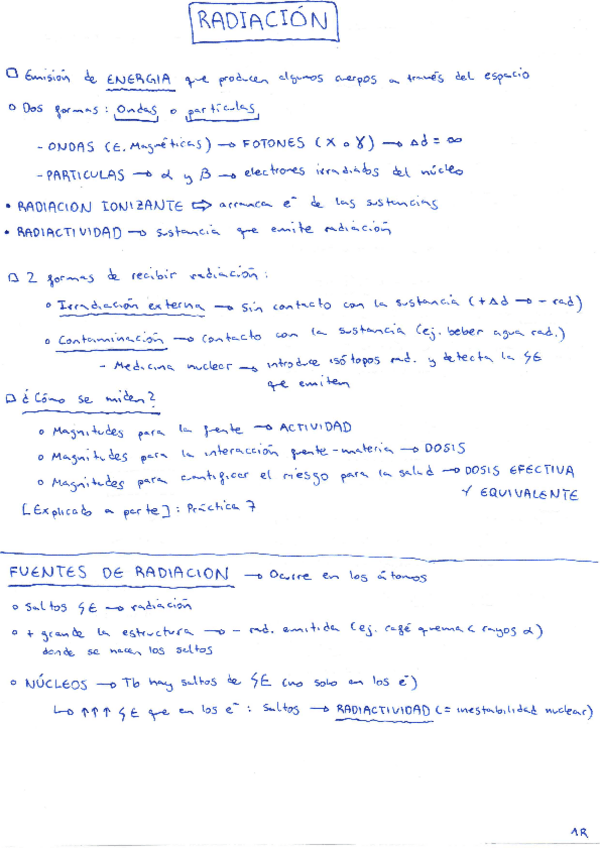 RADIACIÓN
□ Emisión de ENERGIA que producen algunos cuerpos a través del espacio
o Dos formas: Ondas o partículas
- ONDAS (E. Magnéticas) → FOTONES (X o γ) → Δd = ∞
- PARTICULAS → α y β → electrones irradiados del núcleo
• RADIACION IONIZANTE ⇨ arranca e⁻ de las sustancias
• RADIACTIVIDAD → sustancia que emite radiación
□ 2 formas de recibir radiación:
o Irradiación externa → Sin contacto con la sustancia (+Δd → - rad)
o Contaminación → contacto con la sustancia (ej. beber agua rad.)
- Medicina nuclear → introduce isótopos rad. y detecta la ςE
que emiten
□ ¿Cómo se miden?
o Magnitudes para la fuente → ACTIVIDAD
o Magnitudes para la interacción fuente-materia → DOSIS
o Magnitudes para cuantificar el riesgo para la salud → DOSIS EFECTIVA
Y EQUIVALENTE
[Explicado a parte]: Práctica 7
FUENTES DE RADIACION → Ocurre en los átomos
o Saltos ςE → radiación
o + grande la estructura → - rad. emitida (ej. café quema < rayos α)
donde se hacen los saltos
o NÚCLEOS → Tb hay saltos de ςE (no solo en los e⁻)
↳ ↑↑↑ ςE que en los e⁻: saltos → RADIACTIVIDAD (= inestabilidad nuclear)
1R